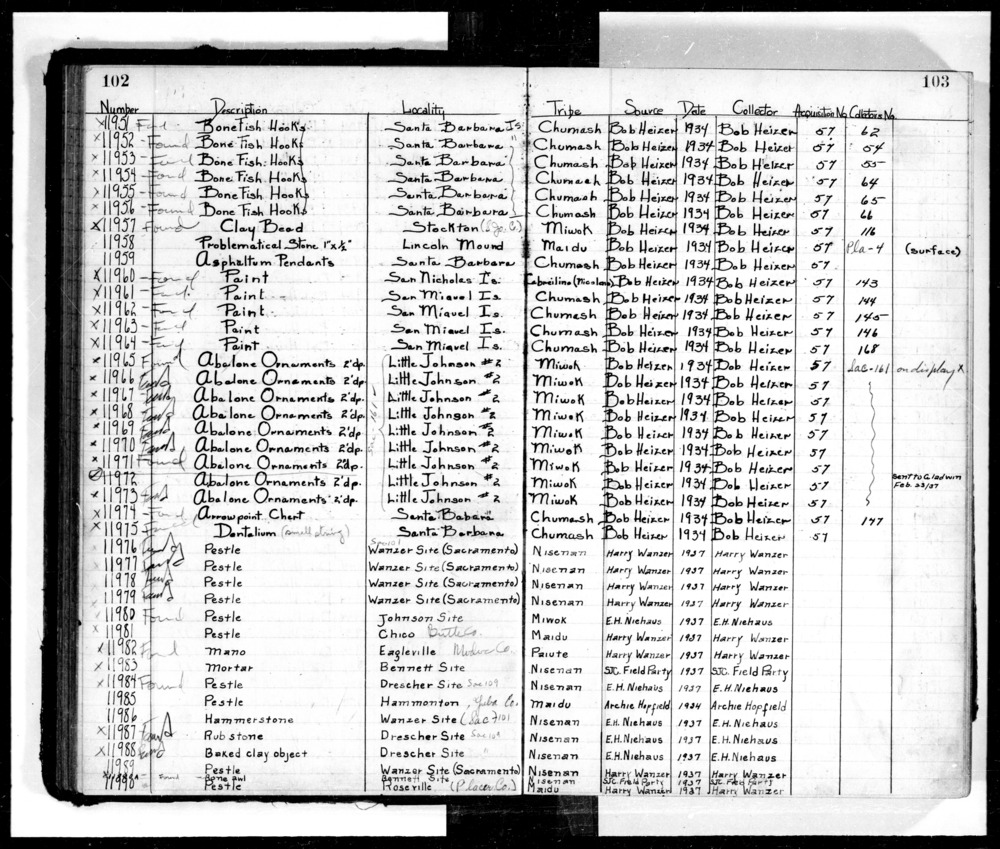 102 103
Number Description Locality Tribe Source Date Collector Acquisition No. Collectors No.
x11951 Found Bone Fish Hooks Santa Barbara Is. Chumash Bob Heizer 1934 Bob Heizer 57 62
x11952 - Found Bone Fish Hooks Santa Barbara " Chumash Bob Heizer 1934 Bob Heizer 57 54
x11953 - Found Bone Fish Hooks Santa Barbara Chumash Bob Heizer 1934 Bob Heizer 57 55
x11954 - Found Bone Fish Hooks Santa Barbara Chumash Bob Heizer 1934 Bob Heizer 57 64
x11955 - Found Bone Fish Hooks Santa Barbara Chumash Bob Heizer 1934 Bob Heizer 57 65
x11956 - Found Bone Fish Hooks Santa Barbara Chumash Bob Heizer 1934 Bob Heizer 57 66
x11957 Found Clay Bead Stockton (S.J. Co.) Miwok Bob Heizer 1934 Bob Heizer 57 116
11958 Problematical Stone 1"x½" Lincoln Mound Maidu Bob Heizer 1934 Bob Heizer 57 Pla-4 (surface)
11959 Asphaltum Pendants Santa Barbara Chumash Bob Heizer 1934 Bob Heizer 57
x11960 - Found Paint San Nicholas Is. Gabrielino (Nicoleno) Bob Heizer 1934 Bob Heizer 57 143
x11961 - Found Paint San Miguel Is. Chumash Bob Heizer 1934 Bob Heizer 57 144
x11962 - Found Paint San Miguel Is. Chumash Bob Heizer 1934 Bob Heizer 57 145
x11963 - Found Paint San Miguel Is. Chumash Bob Heizer 1934 Bob Heizer 57 146
x11964 - Found Paint San Miguel Is. Chumash Bob Heizer 1934 Bob Heizer 57 168
x11965 Found Abalone Ornaments 2'dp. Little Johnson #2 Miwok Bob Heizer 1934 Bob Heizer 57 Sac-161 on display x
x11966 Found Abalone Ornaments 2'dp. Little Johnson #2 Miwok Bob Heizer 1934 Bob Heizer 57
x11967 - Found Abalone Ornaments 2'dp. Little Johnson #2 Miwok Bob Heizer 1934 Bob Heizer 57
x11968 Found Abalone Ornaments 2'dp. Little Johnson #2 Miwok Bob Heizer 1934 Bob Heizer 57
x11969 Found Abalone Ornaments 2'dp. Little Johnson #2 Miwok Bob Heizer 1934 Bob Heizer 57
x11970 Found Abalone Ornaments 2'dp. Little Johnson #2 Miwok Bob Heizer 1934 Bob Heizer 57
x11971 Found Abalone Ornaments 2'dp. Little Johnson #2 Miwok Bob Heizer 1934 Bob Heizer 57
11972 Abalone Ornaments 2'dp. Little Johnson #2 Miwok Bob Heizer 1934 Bob Heizer 57 Sent to Gladwin Feb. 23/37
x11973 Found Abalone Ornaments 2'dp. Little Johnson #2 Miwok Bob Heizer 1934 Bob Heizer 57
x11974 - Found Arrowpoint Chert Santa Babara Chumash Bob Heizer 1934 Bob Heizer 57 147
x11975 Found Dentalium (small string) Santa Barbara Chumash Bob Heizer 1934 Bob Heizer 57
x11976 Found Pestle Wanzer Site (Sacramento) Nisenan Harry Wanzer 1937 Harry Wanzer
x11977 Found Pestle Wanzer Site (Sacramento) Nisenan Harry Wanzer 1937 Harry Wanzer
x11978 Found Pestle Wanzer Site (Sacramento) Nisenan Harry Wanzer 1937 Harry Wanzer
x11979 Found Pestle Wanzer Site (Sacramento) Nisenan Harry Wanzer 1937 Harry Wanzer
x11980 Found Pestle Johnson Site Miwok E.H. Niehaus 1937 E.H. Niehaus
x11981 Pestle Chico Butte Co. Maidu Harry Wanzer 1937 Harry Wanzer
x11982 Found Mano Eagleville Modoc Co. Paiute Harry Wanzer 1937 Harry Wanzer
x11983 Mortar Bennett Site Nisenan SJC. Field Party 1937 SJC. Field Party
x11984 Found Pestle Drescher Site Sac 109 Nisenan E.H. Niehaus 1937 E.H. Niehaus
11985 Pestle Hammonton, Yuba Co. Maidu Archie Hopfield 1934 Archie Hopfield
11986 Hammerstone Wanzer Site (Sac 101 Nisenan E.H. Niehaus 1937 E.H. Niehaus
x11987 Found Rubstone Drescher Site Sac 109 Nisenan E.H. Niehaus 1937 E.H. Niehaus
x11988 Found Baked clay object Drescher Site " Nisenan E.H. Niehaus 1937 E.H. Niehaus
11989 Pestle Wanzer Site (Sacramento) Nisenan Harry Wanzer 1937 Harry Wanzer
x11989A - Found Bone awl Bennett Site Nisenan SJC Field Party 1937 SJC Field Party
11990 Pestle Roseville (Placer Co.) Maidu Harry Wanzer 1937 Harry Wanzer